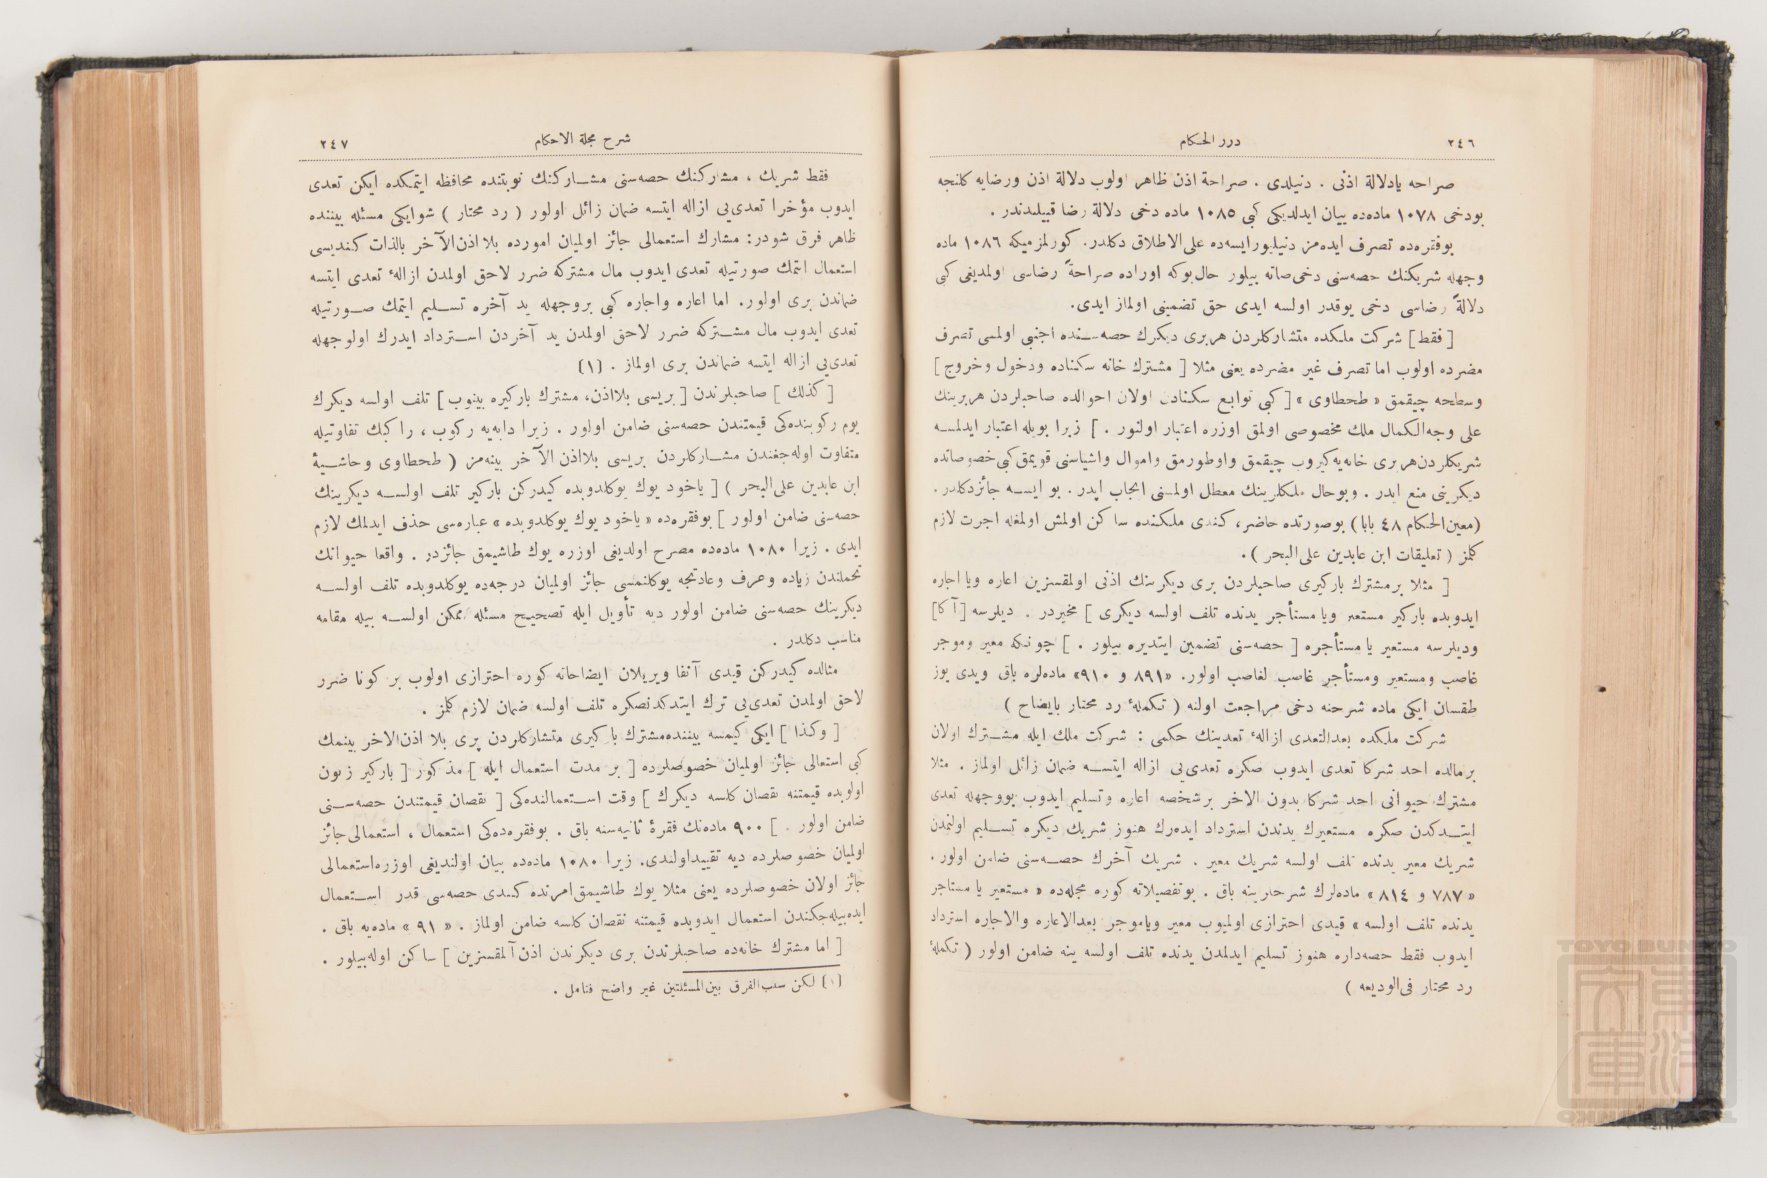 ٢٤٦
درر الحكام
صراحه يادلالة اذنى . دنيلدى . صراحة اذن ظاهر اولوب دلالة اذن ورضايه كلنجه
بودخى ١٠٧٨ ماده‌ده بيان ايدلديكى كبى ١٠٨٥ ماده دخى دلالة رضا قبيلندندر .
بوفقره‌ده تصرف ايده‌مز دنيليورايسه‌ده على‌الاطلاق دكلدر. كورلمزميكه ١٠٨٦ ماده
وجهله شريكنك حصه‌سنى دخى‌صاته بيلور حال‌بوكه اوراده صراحةً رضاسى اولمديغى كبى
دلالةً رضاسى دخى يوقدر اولسه ايدى حق تضمينى اولماز ايدى.
[ فقط ] شركت ملكده متشاركلردن هربرى ديكرك حصه‌سنده اجنبى اولمسى تصرف
مضرده اولوب اما تصرف غير مضرده يعنى مثلا [ مشترك خانه سكناده ودخول وخروج ]
وسطحه چيقمق « طحطاوى » [ كبى توابع سكنادن اولان احوالده صاحبلردن هربرينك
على وجه‌الكمال ملك مخصوصى اولمق اوزره اعتبار اولنور . ] زيرا بويله اعتبار ايدلمسه
شريكلردن‌هربرى خانه‌يه‌كيروب چيقمق واوطورمق واموال واشياسنى قويمق‌كبى خصوصاتده
ديكرينى منع ايدر . وبوحال ملكلرينك معطل اولمسنى ايجاب ايدر . بو ايسه جائزدكلدر .
(معين‌الحكام ٤٨ بابا) بوصورتده حاضر، كندى ملكنده ساكن اولمش اولمغله اجرت لازم
كلمز ( تعليقات ابن عابدين على‌البحر ) .
[ مثلا برمشترك باركيرى صاحبلردن برى ديكرينك اذنى اولمقسزين اعاره ويا اجاره
ايدوبده باركير مستعير ويا مستأجر يدنده تلف اولسه ديكرى ] مخيردر . ديلرسه [ آكا ]
وديلرسه مستعير يا مستأجره [ حصه‌سنى تضمين ايتديره بيلور . ] چونكه معير وموجر
غاصب ومستعير ومستأجر غاصب لغاصب اولور. «٨٩١ و ٩١٠» ماده‌لره باق ويدى يوز
طقسان ايكى ماده شرحنه دخى مراجعت اولنه ( تكملهٔ رد محتار بايضاح )
شركت ملكده بعدالتعدى ازالهٔ تعدينك حكمى : شركت ملك ايله مشترك اولان
برمالده احد شركا تعدى ايدوب صكره تعدى‌يى ازاله ايتسه ضمان زائل اولماز . مثلا
مشترك حيوانى احد شركا بدون الاخر برشخصه اعاره وتسليم ايدوب بووجهله تعدى
ايتدكدن صكره مستعيرك يدندن استرداد ايده‌رك هنوز شريك ديكره تسليم اولنمدن
شريك معير يدنده تلف اولسه شريك معير . شريك آخرك حصه‌سنى ضامن اولور .
« ٧٨٧ و ٨١٤ » ماده‌لرك شرحلرينه باق . بوتفصيلاته كوره مجله‌ده « مستعير يا مستاجر
يدنده تلف اولسه » قيدى احترازى اولميوب معير وياموجر بعدالاعاره والاجاره استرداد
ايدوب فقط حصه‌داره هنوز تسليم ايدلمدن يدنده تلف اولسه ينه ضامن اولور ( تكملهٔ
رد محتار فى‌الوديعه )
شرح مجلة الاحكام
٢٤٧
فقط شريك ، مشاركنك حصه‌سنى مشاركنك نوبتنده محافظه ايتمكده ايكن تعدى
ايدوب مؤخرا تعدى‌يى ازاله ايتسه ضمان زائل اولور ( رد محتار ) شوايكى مسئله بيننده
ظاهر فرق شودر: مشارك استعمالى جائز اولميان امورده بلا اذن‌الآخر بالذات كنديسى
استعمال ايتمك صورتيله تعدى ايدوب مال مشتركه ضرر لاحق اولمدن ازالهٔ تعدى ايتسه
ضماندن برى اولور. اما اعاره واجاره كبى بروجهله يد آخره تسليم ايتمك صورتيله
تعدى ايدوب مال مشتركه ضرر لاحق اولمدن يد آخردن استرداد ايدرك اولوجهله
تعدى‌يى ازاله ايتسه ضماندن برى اولماز . (١)
[ كذلك ] صاحبلرندن [ بريسى بلااذن، مشترك باركيره بينوب ] تلف اولسه ديكرك
يوم ركوبنده‌كى قيمتندن حصه‌سنى ضامن اولور . زيرا دابه‌يه ركوب ، راكبك تفاوتيله
متفاوت اوله‌جغندن مشاركلردن بريسى بلااذن الآخر بينه‌مز ( طحطاوى وحاشيهٔ
ابن عابدين على‌البحر ) [ ياخود يوك يوكلدوبده كيدركن باركير تلف اولسه ديكرينك
حصه‌سنى ضامن اولور ] بوفقره‌ده « ياخود يوك يوكلدوبده » عباره‌سى حذف ايدلمك لازم
ايدى . زيرا ١٠٨٠ ماده‌ده مصرح اولديغى اوزره يوك طاشيمق جائزدر . واقعا حيوانك
تحملندن زياده وعرف وعادتجه يوكلنمسى جائز اولميان درجه‌ده يوكلدوبده تلف اولسه
ديكرينك حصه‌سنى ضامن اولور ديه تأويل ايله تصحيح مسئله ممكن اولسه بيله مقامه
مناسب دكلدر .
مثالده كيدركن قيدى آنفا ويريلان ايضاحاته كوره احترازى اولوب بر كونا ضرر
لاحق اولمدن تعدى‌يى ترك ايتدكدنصكره تلف اولسه ضمان لازم كلمز .
[ وكذا ] ايكى كيمسه بيننده‌مشترك باركيرى متشاركلردن برى بلا اذن‌الاخر بينمك
كبى استعمالى جائز اولميان خصوصلرده [ بر مدت استعمال ايله ] مذكور [ باركير زبون
اولوبده قيمتنه نقصان كلسه ديكرك ] وقت استعمالنده‌كى [ نقصان قيمتندن حصه‌سنى
ضامن اولور . ] ٩٠٠ ماده‌نك فقرهٔ ثانيه‌سنه باق . بوفقره‌ده‌كى استعمال ، استعمالى‌جائز
اولميان خصوصلرده ديه تقييداولندى. زيرا ١٠٨٠ ماده‌ده بيان اولنديغى اوزره‌استعمالى
جائز اولان خصوصلرده يعنى مثلا يوك طاشيمق‌امرنده كندى حصه‌سى قدر استعمال
ايده‌بيله‌جكندن استعمال ايدوبده قيمتنه نقصان كلسه ضامن اولماز . « ٩١ » ماده‌يه باق .
[ اما مشترك خانه‌ده صاحبلرندن برى ديكرندن اذن‌آلمقسزين ] ساكن اوله‌بيلور .
(١) لكن سبب‌الفرق بين‌المسئلتين غير واضح فتامل .
TOYO BUNKO